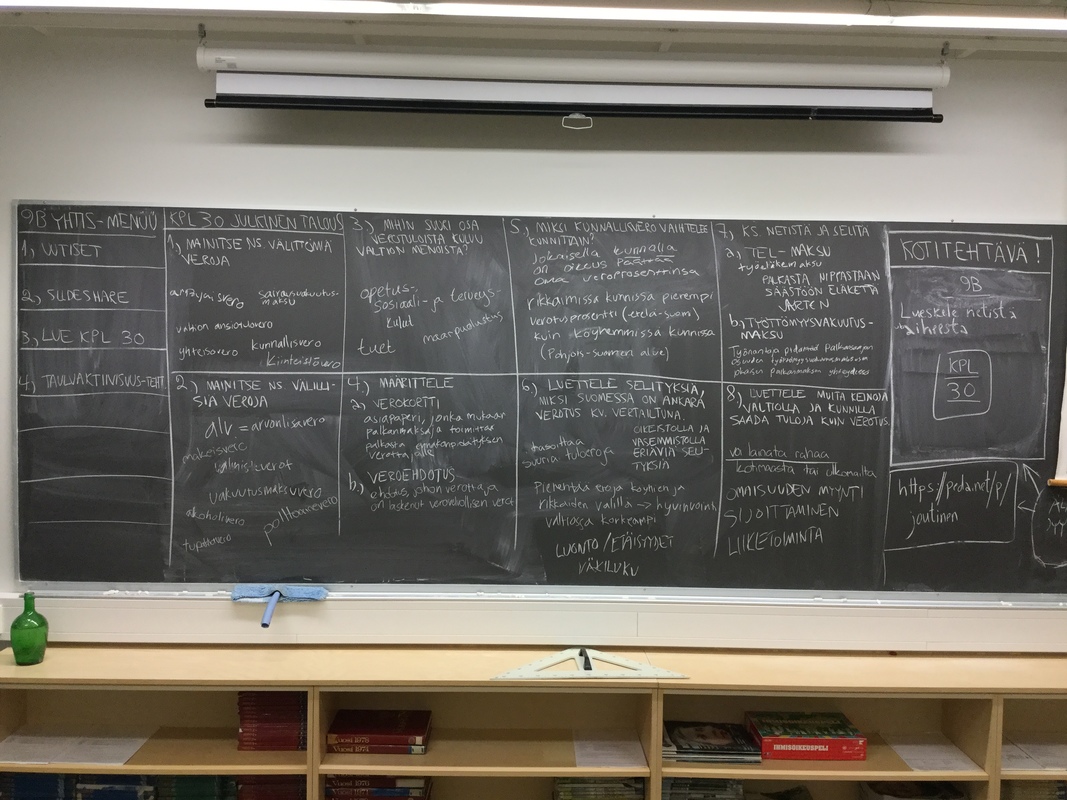 9B YHTIS-MENUU
1) UUTISET
2) SLIDESHARE
3) LUE KPL 30
4) TAULUAKTIIVISUUS-TEHT.
KPL 30 JULKINEN TALOUS
1) MAINITSE NS. VÄLITTÖMIÄ
VEROJA
arpajaisvero
sairausvakuutus-
maksu
valtion ansiotulovero
yhteisövero
kunnallisvero
kiinteistövero
2) MAINITSE NS VÄLILLI-
SIÄ VEROJA
alv = arvonlisävero
makeisvero
valmisteverot
vakuutusmaksuvero
alkoholivero
polttoainevero
tupakkavero
3) MIHIN SUURI OSA
VEROTULOISTA KULUU
VALTION MENOISTA?
opetus-,
sosiaali- ja terveys-
kulut
maanpuolustus
tuet
4) MÄÄRITTELE
a) VEROKORTTI
asiapaperi, jonka mukaan
palkanmaksaja toimittaa
palkasta ennakonpidätyksen
verottajalle
b) VEROEHDOTUS
ehdotus, johon verottaja
on laskenut verovelvollisen verot
5) MIKSI KUNNALLISVERO VAIHTELEE
KUNNITTAIN?
Jokaisella kunnalla
on oikeus päättää
oma veroprosenttinsa
rikkaimissa kunnissa pienempi
verotusprosentti (etelä-suomi)
kuin köyhemmissä kunnissa
(Pohjois-suomen alue)
6) LUETTELE SELITYKSIÄ,
MIKSI SUOMESSA ON ANKARA
VEROTUS KV. VERTAILTUNA.
OIKEISTOLLA JA
VASEMMISTOLLA
ERIÄVIÄ SELI-
TYKSIÄ
tasoittaa
suuria tuloeroja
Pienentää eroja köyhien ja
rikkaiden välillä → hyvinvointi
valtiossa korkeampi
LUONTO / ETÄISYYDET
VÄKILUKU
7) KS. NETISTÄ JA SELITÄ
a) TEL-MAKSU
työeläkemaksu
PALKASTA NIPISTETÄÄN
SÄÄSTÖÖN ELÄKETTÄ
VARTEN
b) TYÖTTÖMYYSVAKUUTUS-
MAKSU
Työnantaja pidättää palkansaajan
osuuden työttömyysvakuutusmaksusta
palkanmaksun yhteydessä
8) LUETTELE MUITA KEINOJA
VALTIOLLA JA KUNNILLA
SAADA TULOJA KUIN VEROTUS.
voi lainata rahaa
kotimaasta tai ulkomailta
OMAISUUDEN MYYNTI
SIJOITTAMINEN
LIIKETOIMINTA
KOTITEHTÄVÄ!
9B
Lueskele netistä
aiheesta
KPL
30
https://peda.net/p/
joutinen
IHMISOIKEUSPELI
Vuosi 1978
Vuosi 1974